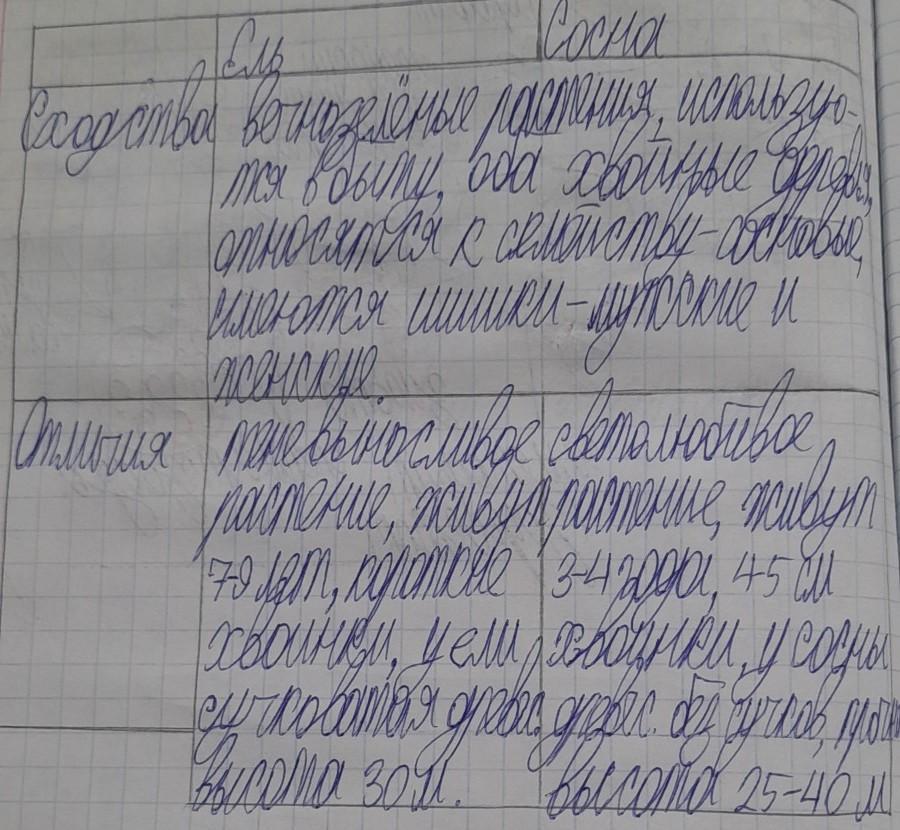 Ель Сосна
Сходства вечнозелёные растения, использую-
тся в быту, оба хвойные деревья,
относятся к семейству-сосновые,
имеются шишки-мужские и
женские.
Отличия теневыносливое светолюбивое
растение, живут растение, живут
7-9 лет, короткие 3-4 года, 4-5 см
хвоинки, у ели хвоинки, у сосны
сучковатая древес. древес. без сучков, прочн
высота 30 м. высота 25-40 м